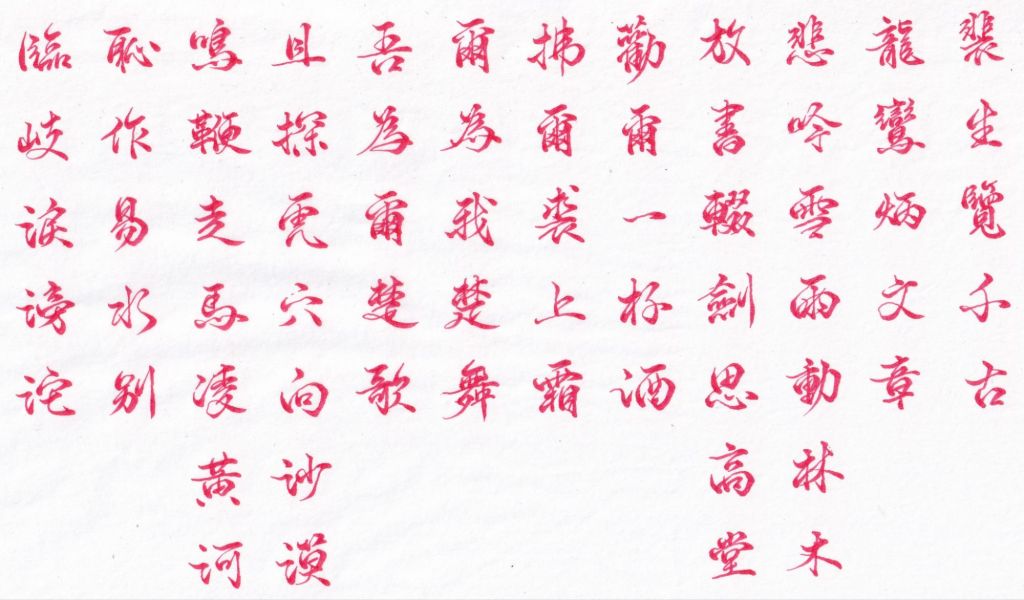 裴生覽千古
龍鸞炳文章
悲吟雪雨動林木
放書輟劍思高堂
勸爾一杯酒
拂爾裘上霜
爾為我楚舞
吾為爾楚歌
且探虎穴向沙漠
鳴鞭走馬凌黃河
恥作易水別
臨岐淚滂沱